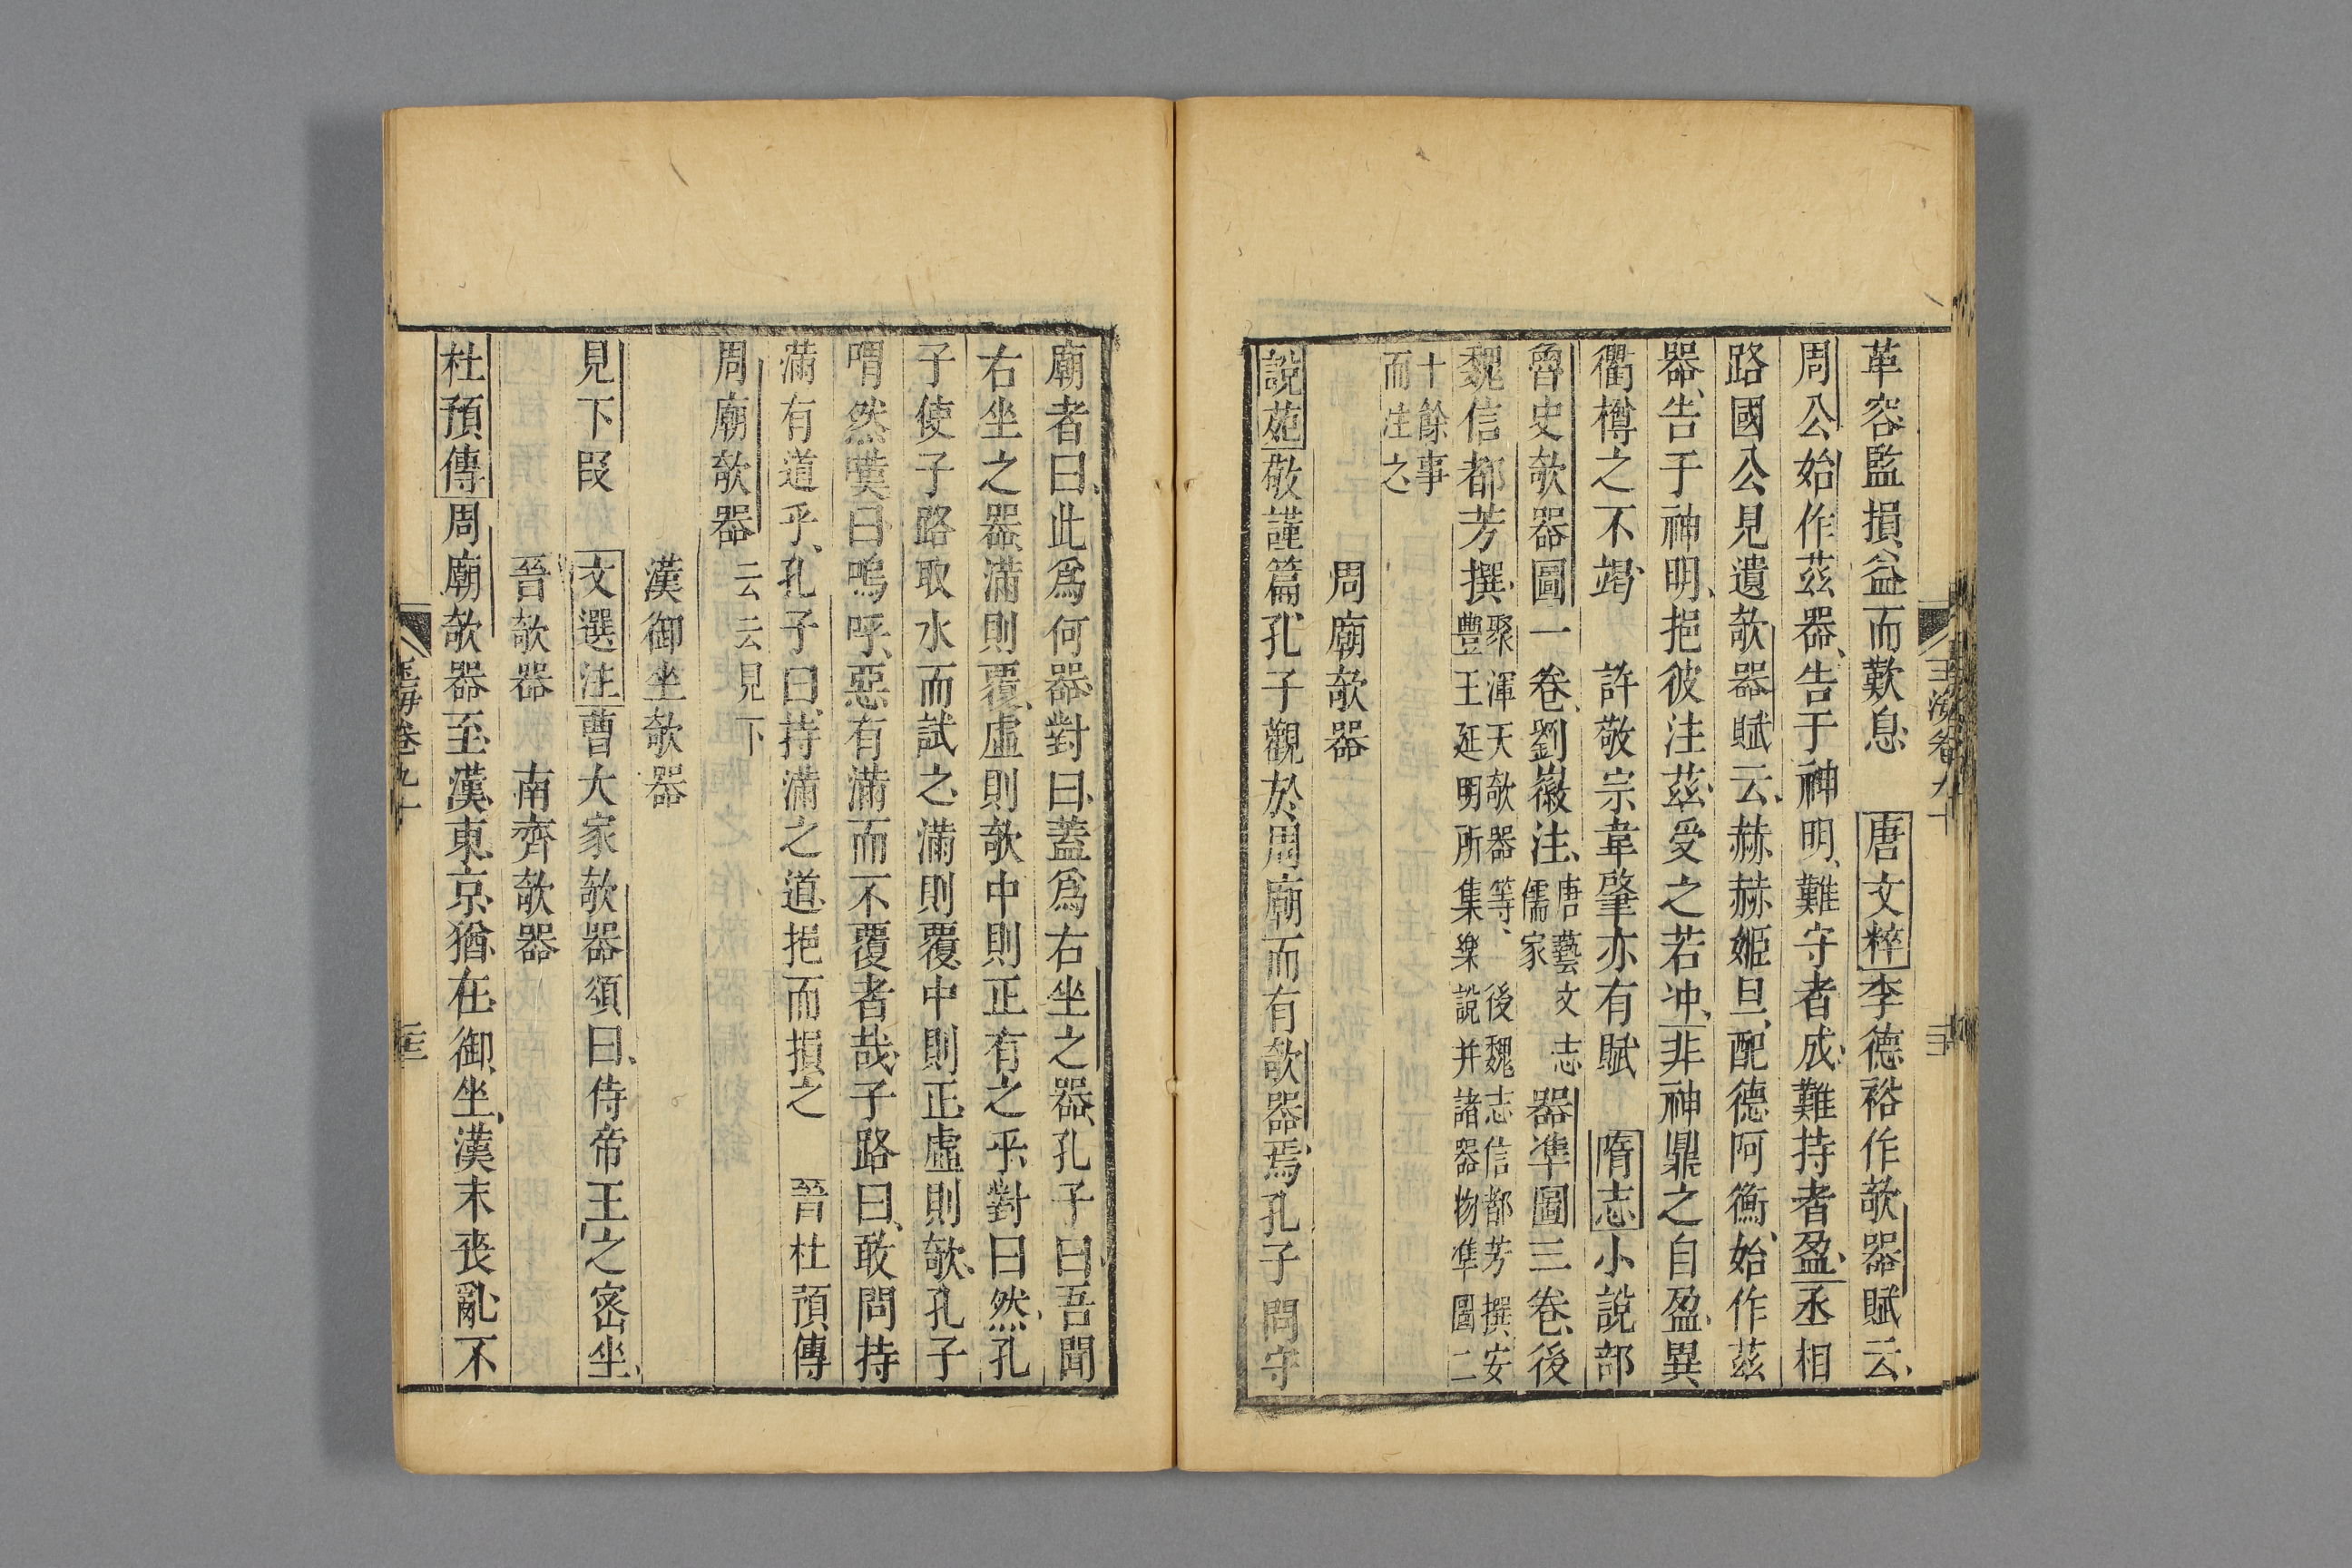 革容監損益而歎息　唐文粹李德裕作欹器賦云
周公始作茲器告于神明難守者成難持者盈丞相
路國公見遺欹器賦云赫赫姬旦配德阿衡始作茲
器告于神明挹彼注茲受之若冲非神鼎之自盈異
衢樽之不竭　許敬宗韋肇亦有賦　隋志小說部
魯史欹器圖一卷劉徽注唐藝文志儒家　器準圖三卷後
魏信都芳撰聚渾天欹器等　後魏志信都芳撰安豐王延明所集樂說并諸器物準圖二
十餘事而注之
周廟欹器
說苑敬謹篇孔子觀於周廟而有欹器焉孔子問守
玉海卷九十
廟者曰此爲何器對曰蓋爲右坐之器孔子曰吾聞
右坐之器滿則覆虛則欹中則正有之乎對曰然孔
子使子路取水而試之滿則覆中則正虛則欹孔子
喟然嘆曰嗚呼惡有滿而不覆者哉子路曰敢問持
滿有道乎孔子曰持滿之道挹而損之　晉杜預傳
周廟欹器云云見下
漢御坐欹器
見下段　文選注曹大家欹器頌曰侍帝王之密坐
晉欹器　南齊欹器
杜預傳周廟欹器至漢東京猶在御坐漢末喪亂不
玉海卷九十